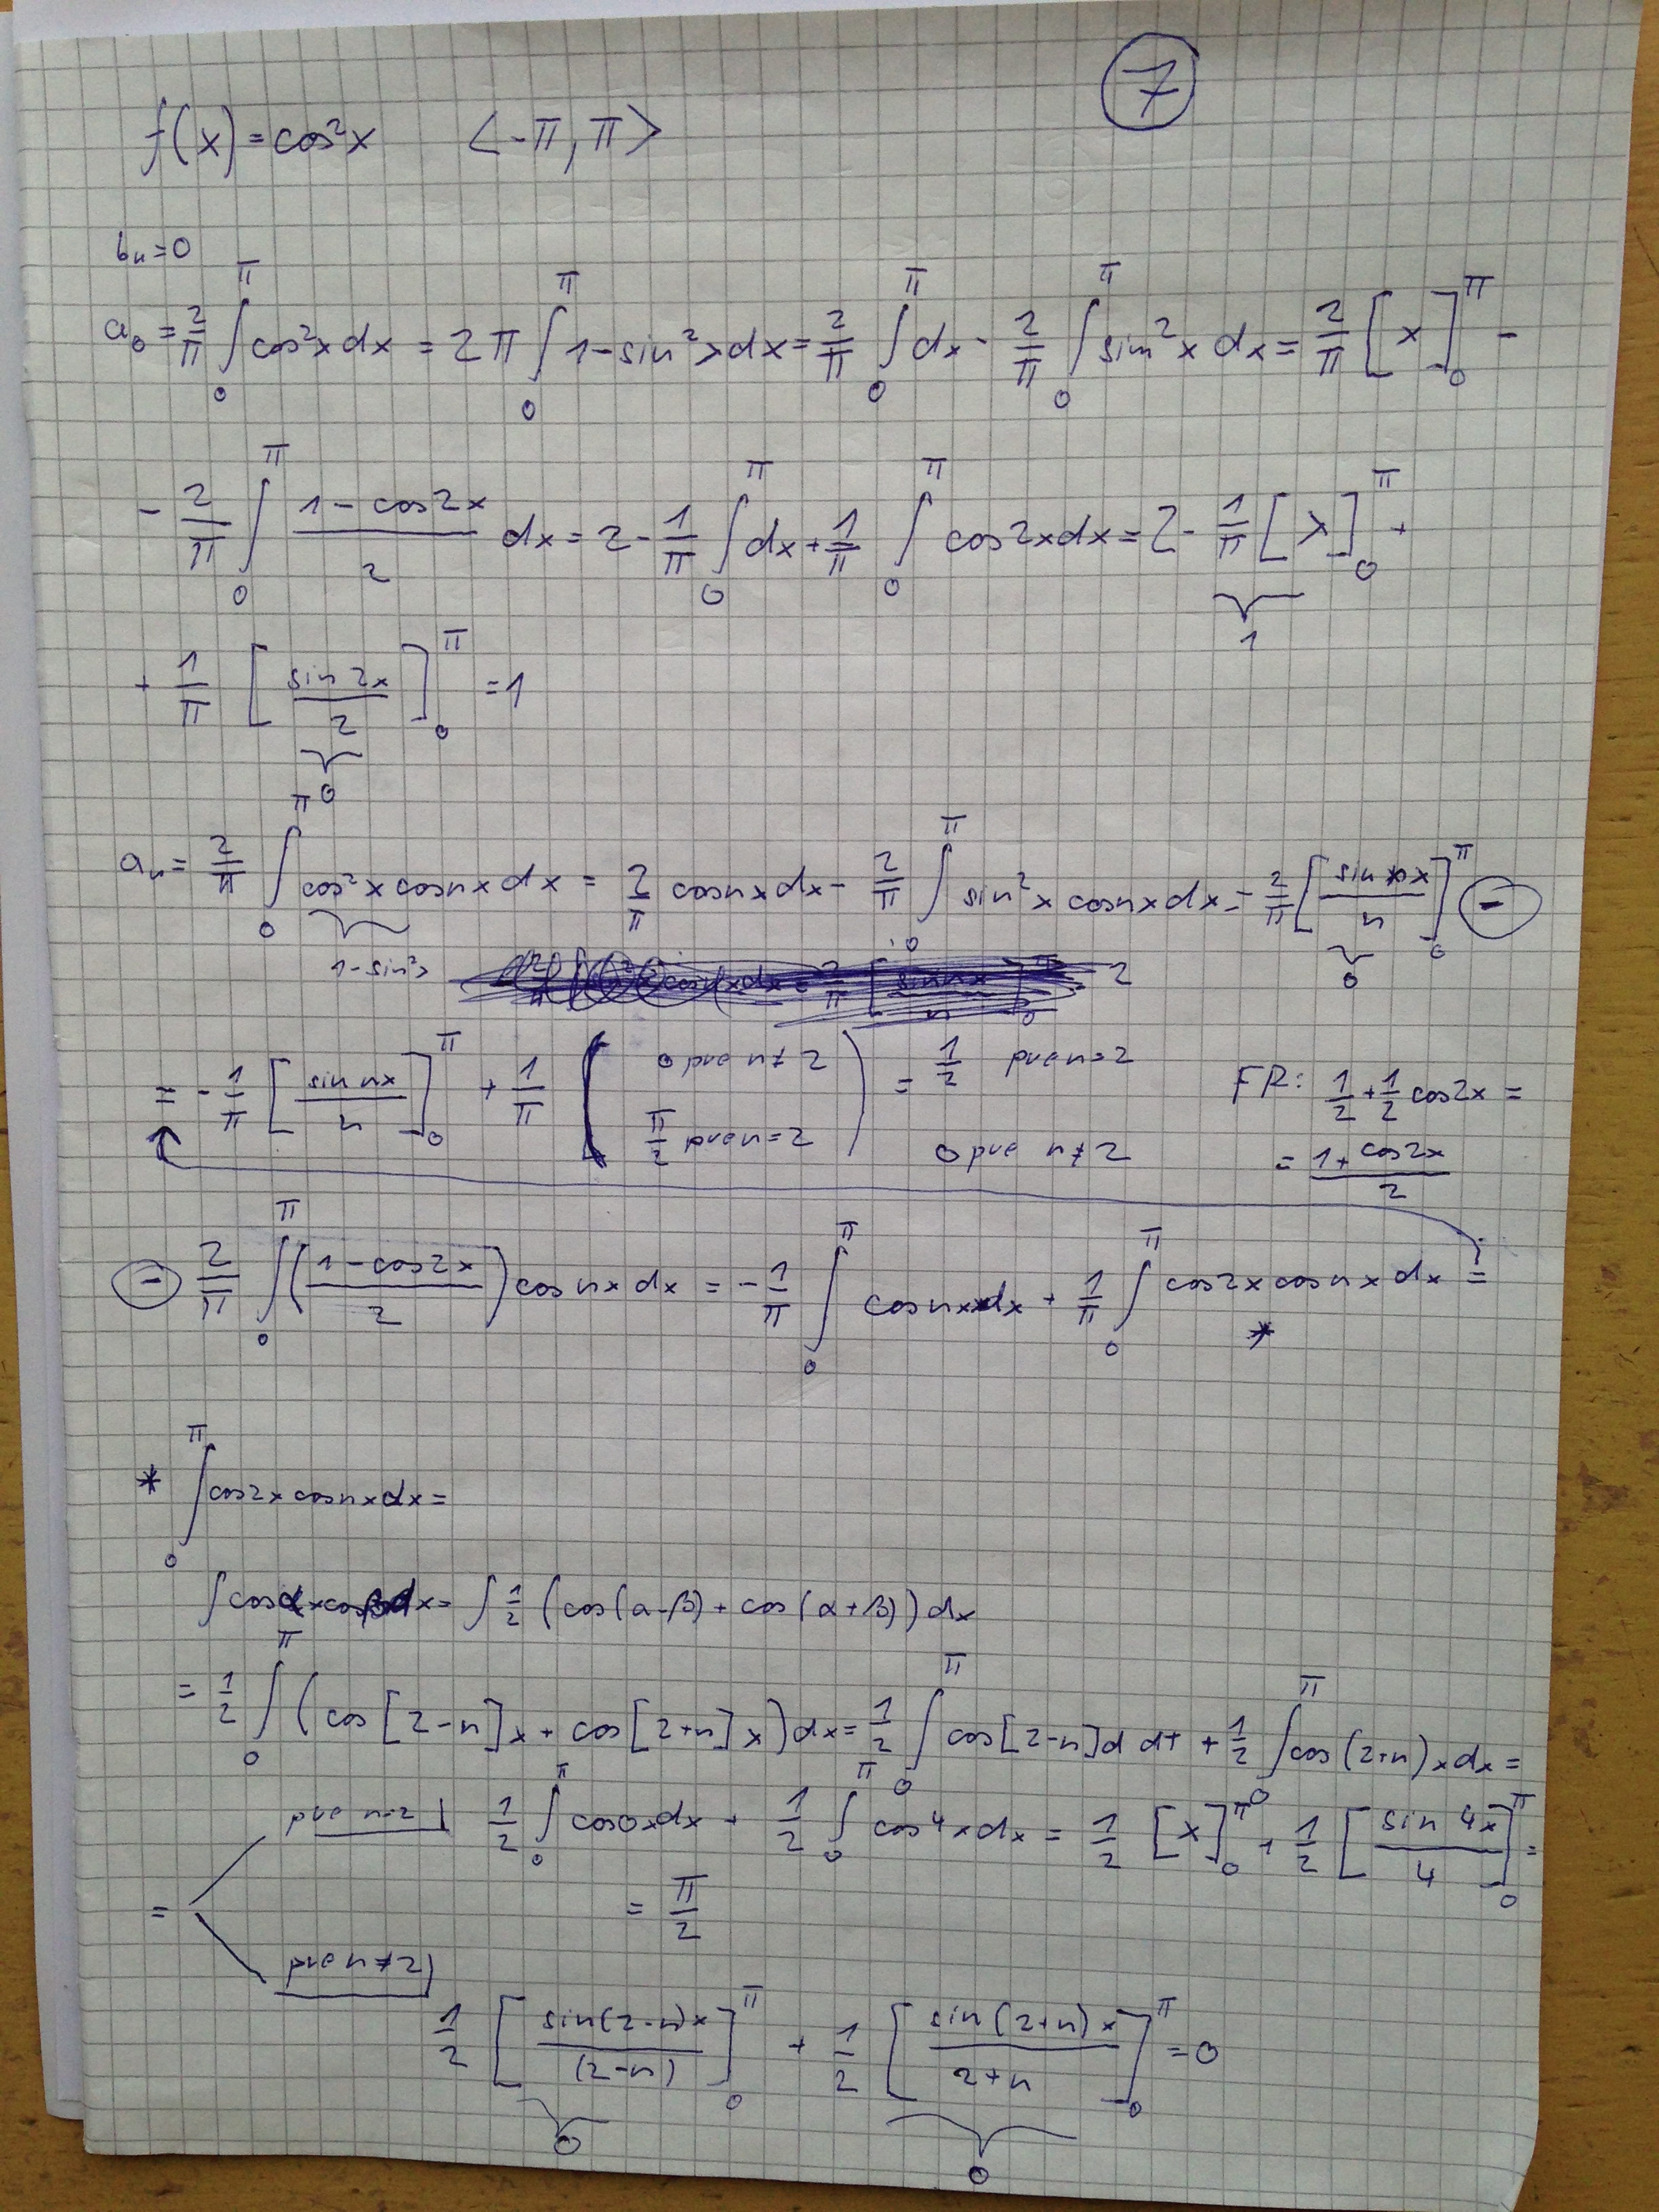 7
f(x) = cos²x  <-π, π>
bₙ = 0
a₀ = 2/π ∫₀^π cos²x dx = 2π ∫₀^π 1 - sin²x dx = 2/π ∫₀^π dx - 2/π ∫₀^π sin²x dx = 2/π [x]₀^π -
- 2/π ∫₀^π (1 - cos2x)/2 dx = 2 - 1/π ∫₀^π dx + 1/π ∫₀^π cos2x dx = 2 - 1/π [x]₀^π +
1
+ 1/π [sin2x/2]₀^π = 1
0
aₙ = 2/π ∫₀^π cos²x cosnx dx = 2/π cosnx dx - 2/π ∫₀^π sin²x cosnx dx = 2/π [sin nx/n]₀^π -
1 - sin²x
2
0
= - 1/π [sin nx/n]₀^π + 1/π ( 0 pre n≠2 ; π/2 pre n=2 ) = 1/2 pre n=2 ; 0 pre n≠2
FR: 1/2 + 1/2 cos2x =
= (1 + cos2x)/2
- 2/π ∫₀^π ((1 - cos2x)/2) cosnx dx = - 1/π ∫₀^π cosnx dx + 1/π ∫₀^π cos2x cosnx dx =
*
* ∫₀^π cos2x cosnx dx =
∫ cosαx cosβ dx = ∫ 1/2 (cos(α-β) + cos(α+β)) dx
= 1/2 ∫₀^π (cos[2-n]x + cos[2+n]x) dx = 1/2 ∫₀^π cos[2-n]d dt + 1/2 ∫₀^π cos(2+n)x dx =
= pre n=2| 1/2 ∫₀^π cos0x dx + 1/2 ∫₀^π cos4x dx = 1/2 [x]₀^π + 1/2 [sin4x/4]₀^π =
= π/2
pre n≠2|
1/2 [sin(2-n)x/(2-n)]₀^π + 1/2 [sin(2+n)x/2+n]₀^π = 0
0
0